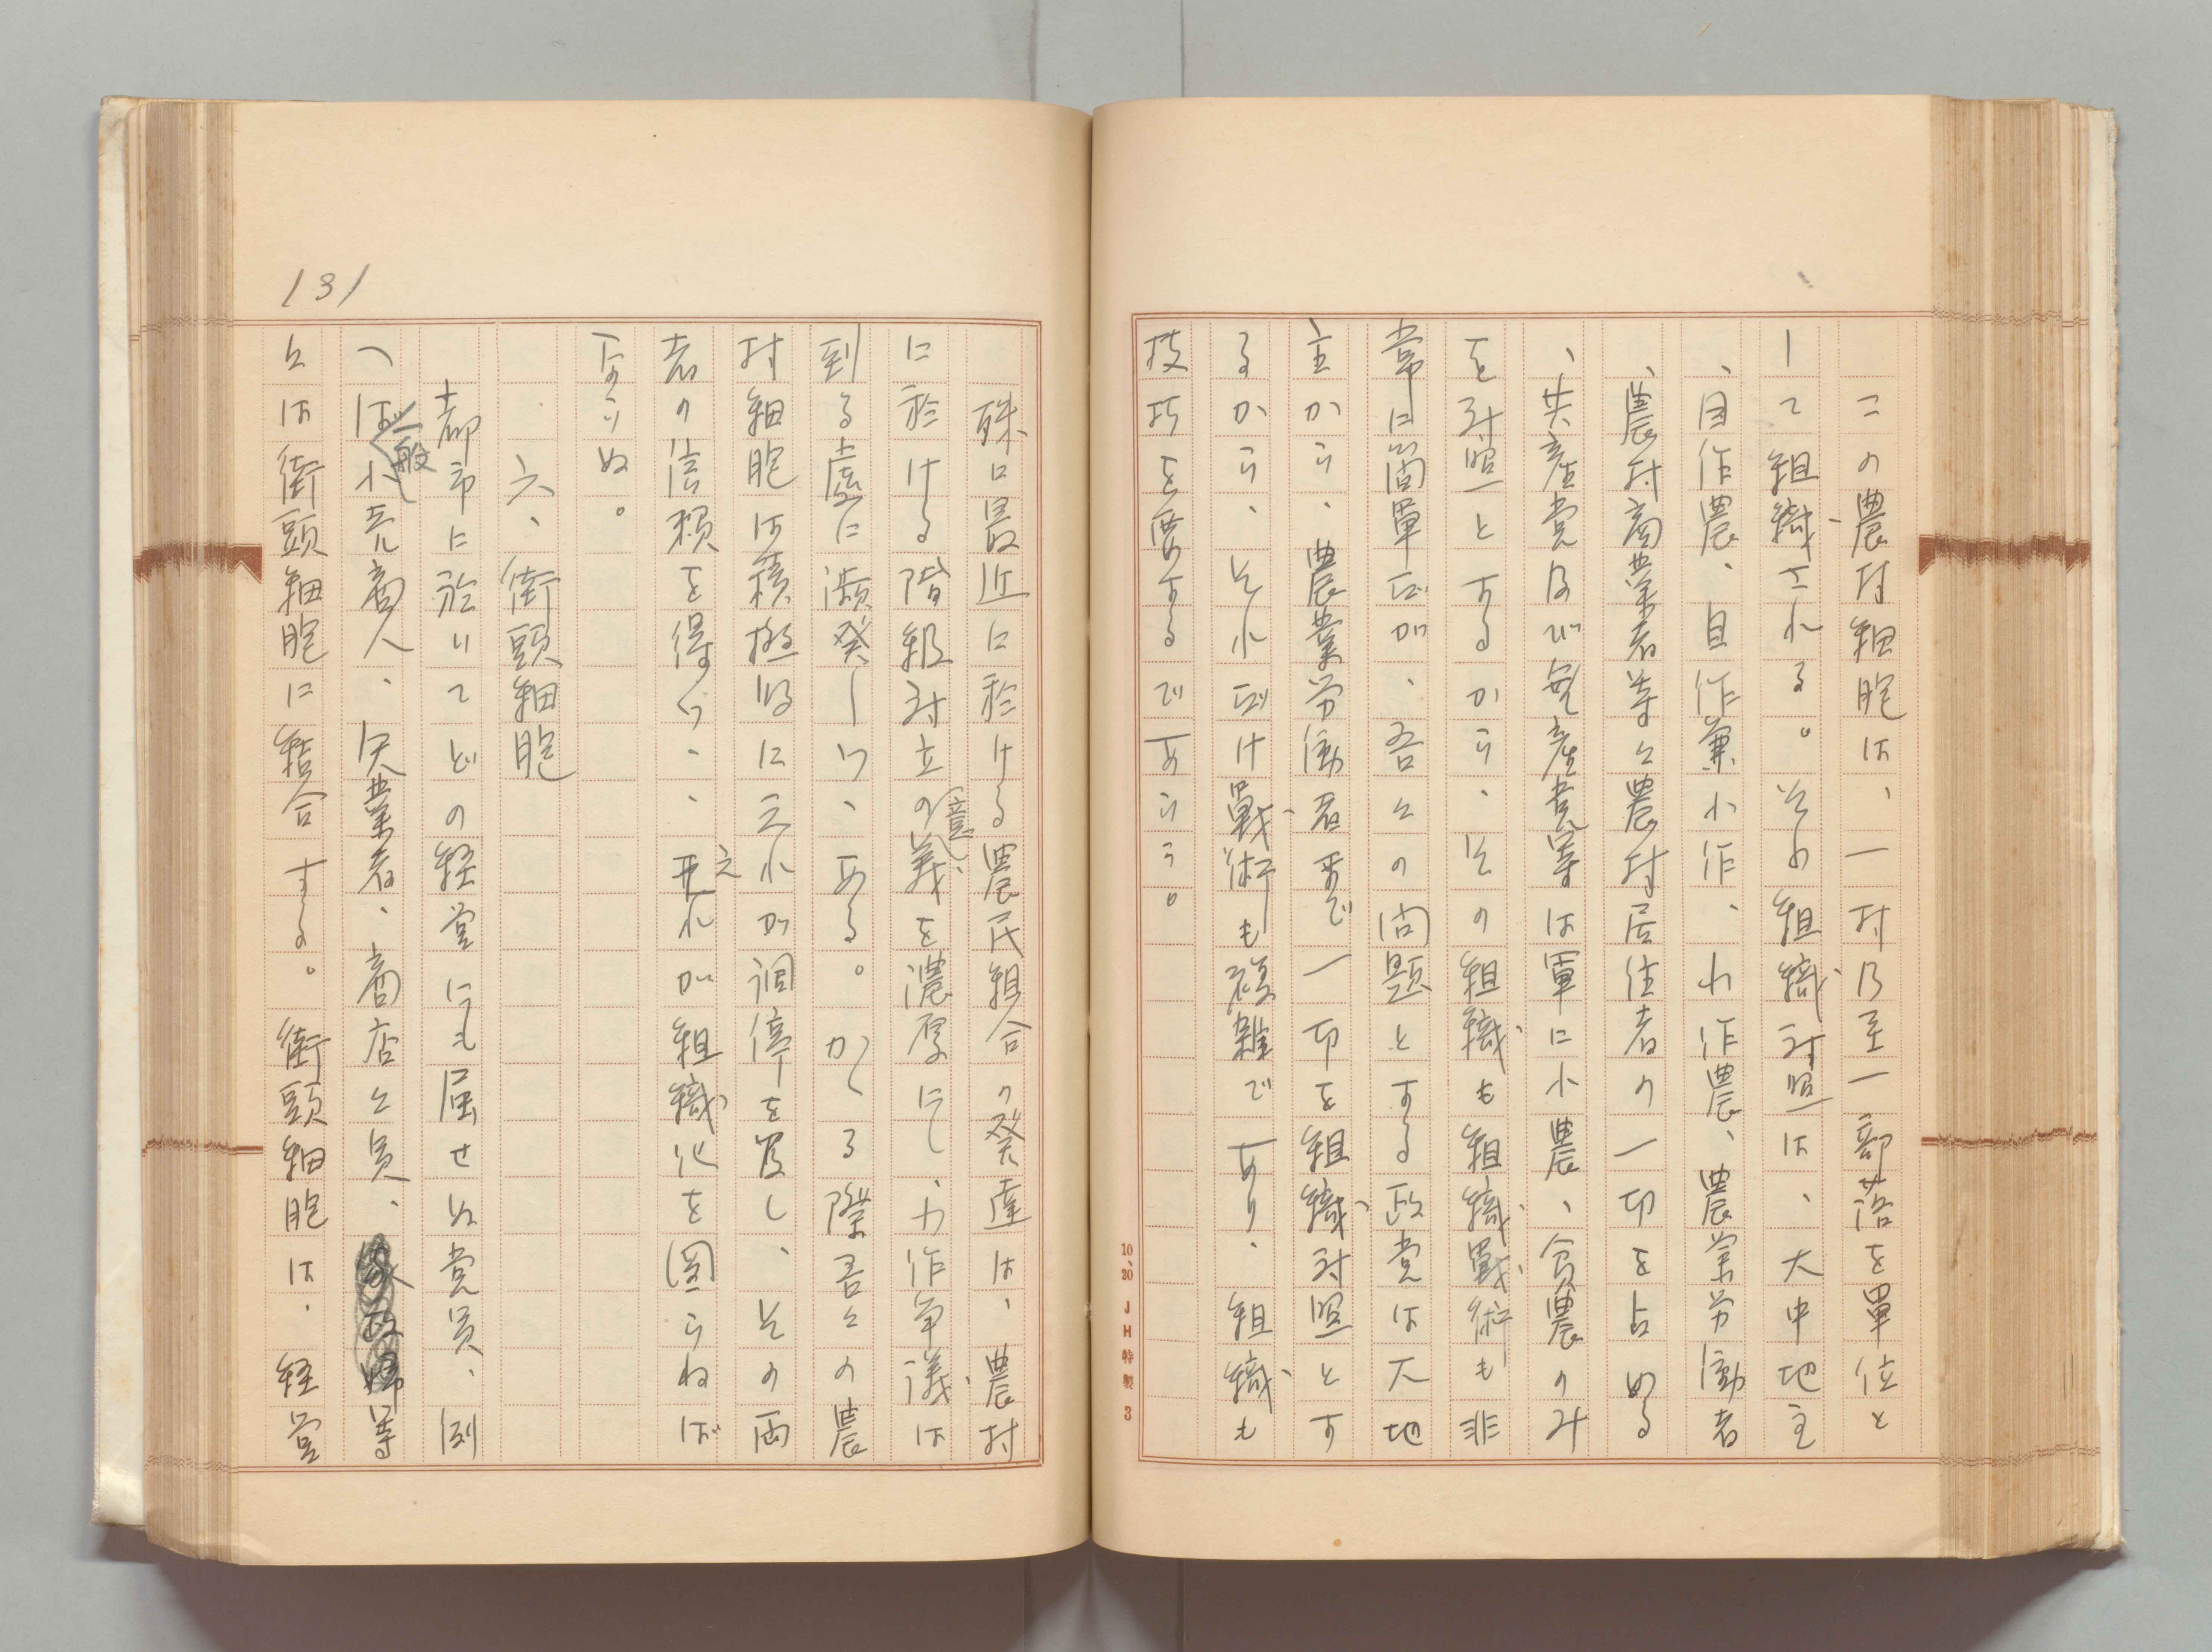 この農村細胞は、一村乃至一部落を單位と
して組織される。その組織対照は、大中地主
、自作農、自作兼小作、小作農、農業労働者
、農村商業者等々農村居住者の一切を占める
、共産党及び無産党等は單に小農、貧農のみ
を対照とするから、その組織も組織戰術も非
常に簡單だが、吾々の問題とする政党は大地
主から、農業労働者まで一切を組織対照とす
るから、それだけ戰術も複雑であり、組織も
技巧を要するであらう。
10.20 JH特製 3
131
殊に最近に於ける農民組合の発達は、農村
に於ける階級対立の意義を濃厚にし、小作争議は
到る處に瀕発しつゝある。かくる際吾々の農
村細胞は積極的に之れが調停を為し、その両
者の信頼を得つゝ、之れが組織化を図らねば
ならぬ。
六、街頭細胞
都市に於いてどの経営にも属せぬ党員、例
へば一般小売商人、失業者、商店々員、等
々は街頭細胞に結合する。街頭細胞は、経営